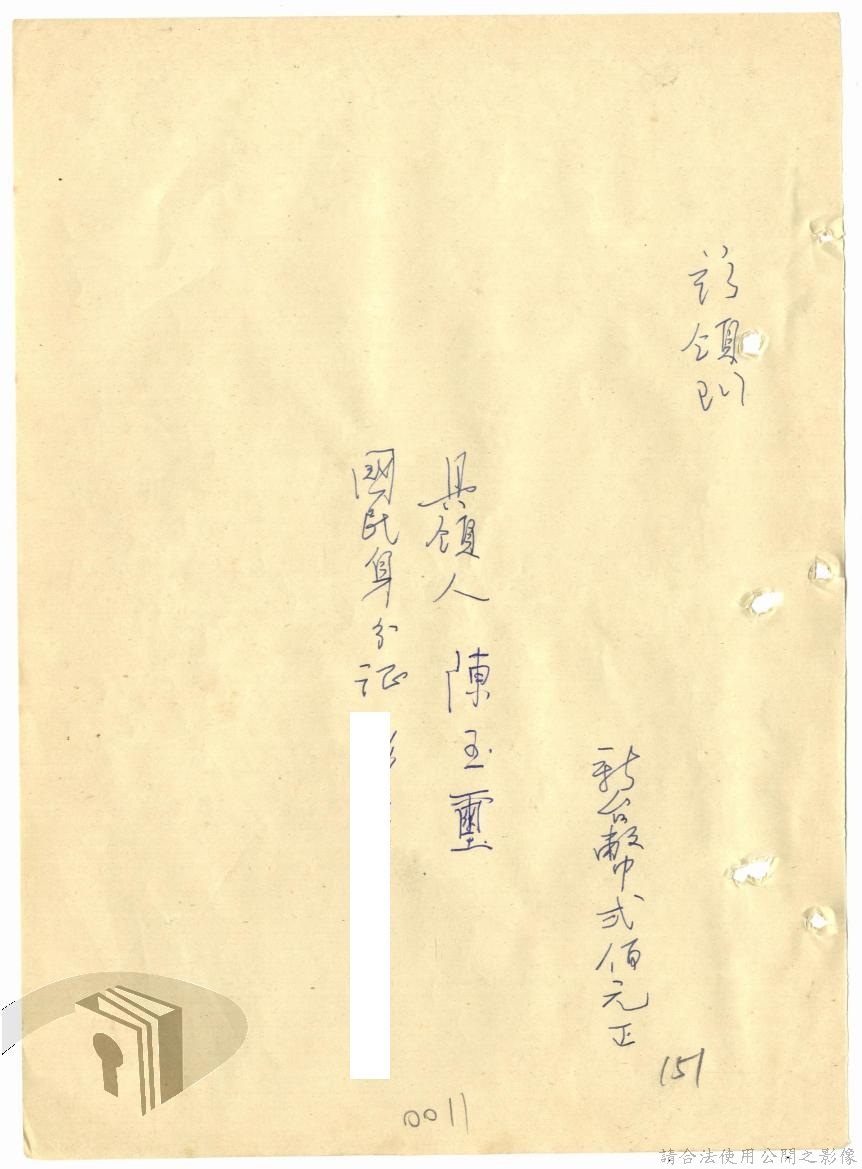 茲領到
新台幣弍佰元正
具領人 陳玉璽
國民身分证
151
0011
請合法使用公開之影像